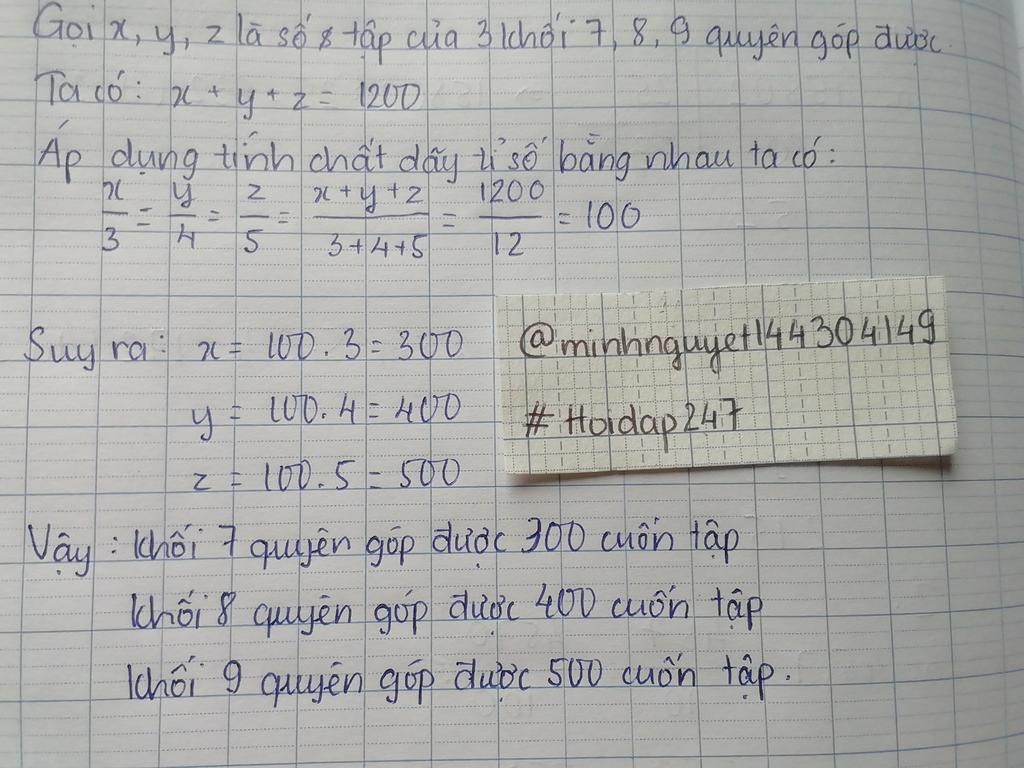 Gọi x, y, z là số tập của 3 khối 7, 8, 9 quyên góp được.
Ta có: x + y + z = 1200
Áp dụng tính chất dãy tỉ số bằng nhau ta có:
x/3 = y/4 = z/5 = (x+y+z)/(3+4+5) = 1200/12 = 100
Suy ra: x = 100.3 = 300
y = 100.4 = 400
z = 100.5 = 500
@minhnguyet144304149
# Hoidap247
Vậy: khối 7 quyên góp được 300 cuốn tập
khối 8 quyên góp được 400 cuốn tập
khối 9 quyên góp được 500 cuốn tập.